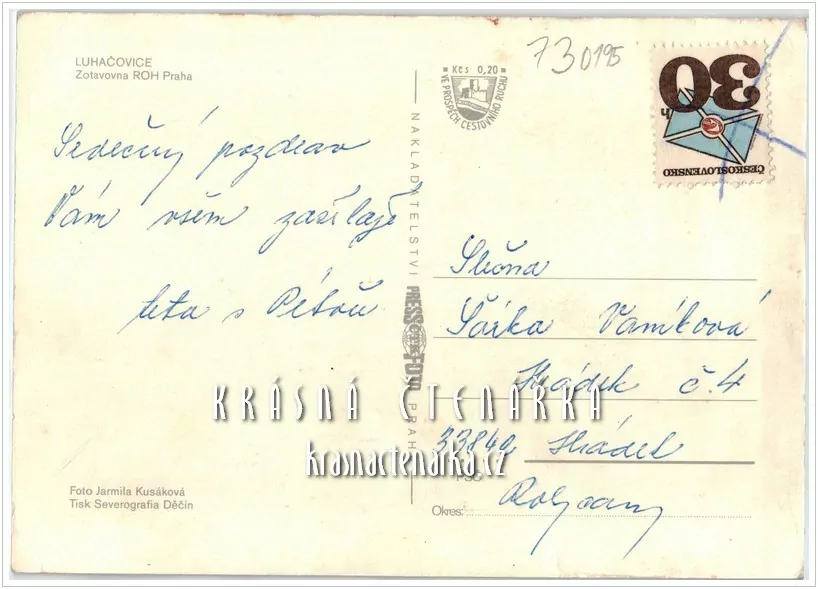 LUHAČOVICE
Zotavovna ROH Praha
Kčs 0,20
VE PROSPĚCH CESTOVNÍHO RUCHU
730195
30
h
ČESKOSLOVENSKO
Srdečný pozdrav
Vám všem zasílají
teta s Péťou
NAKLADATELSTVÍ PRESSFOTO PRAHA
Slečna
Šárka Vaníková
Hrádek č. 4
33842 Hrádek
PSČ
Okres: Rokycany
Foto Jarmila Kusáková
Tisk Severografia Děčín
KRÁSNÁ ČTENÁRKA
krasnactenarka.cz